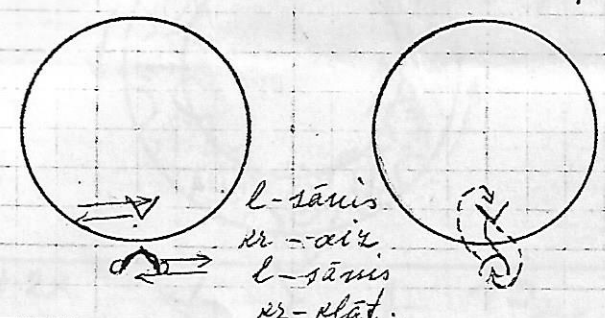 l-sānis
kr-aiz
l-sānis
kr-klāt.